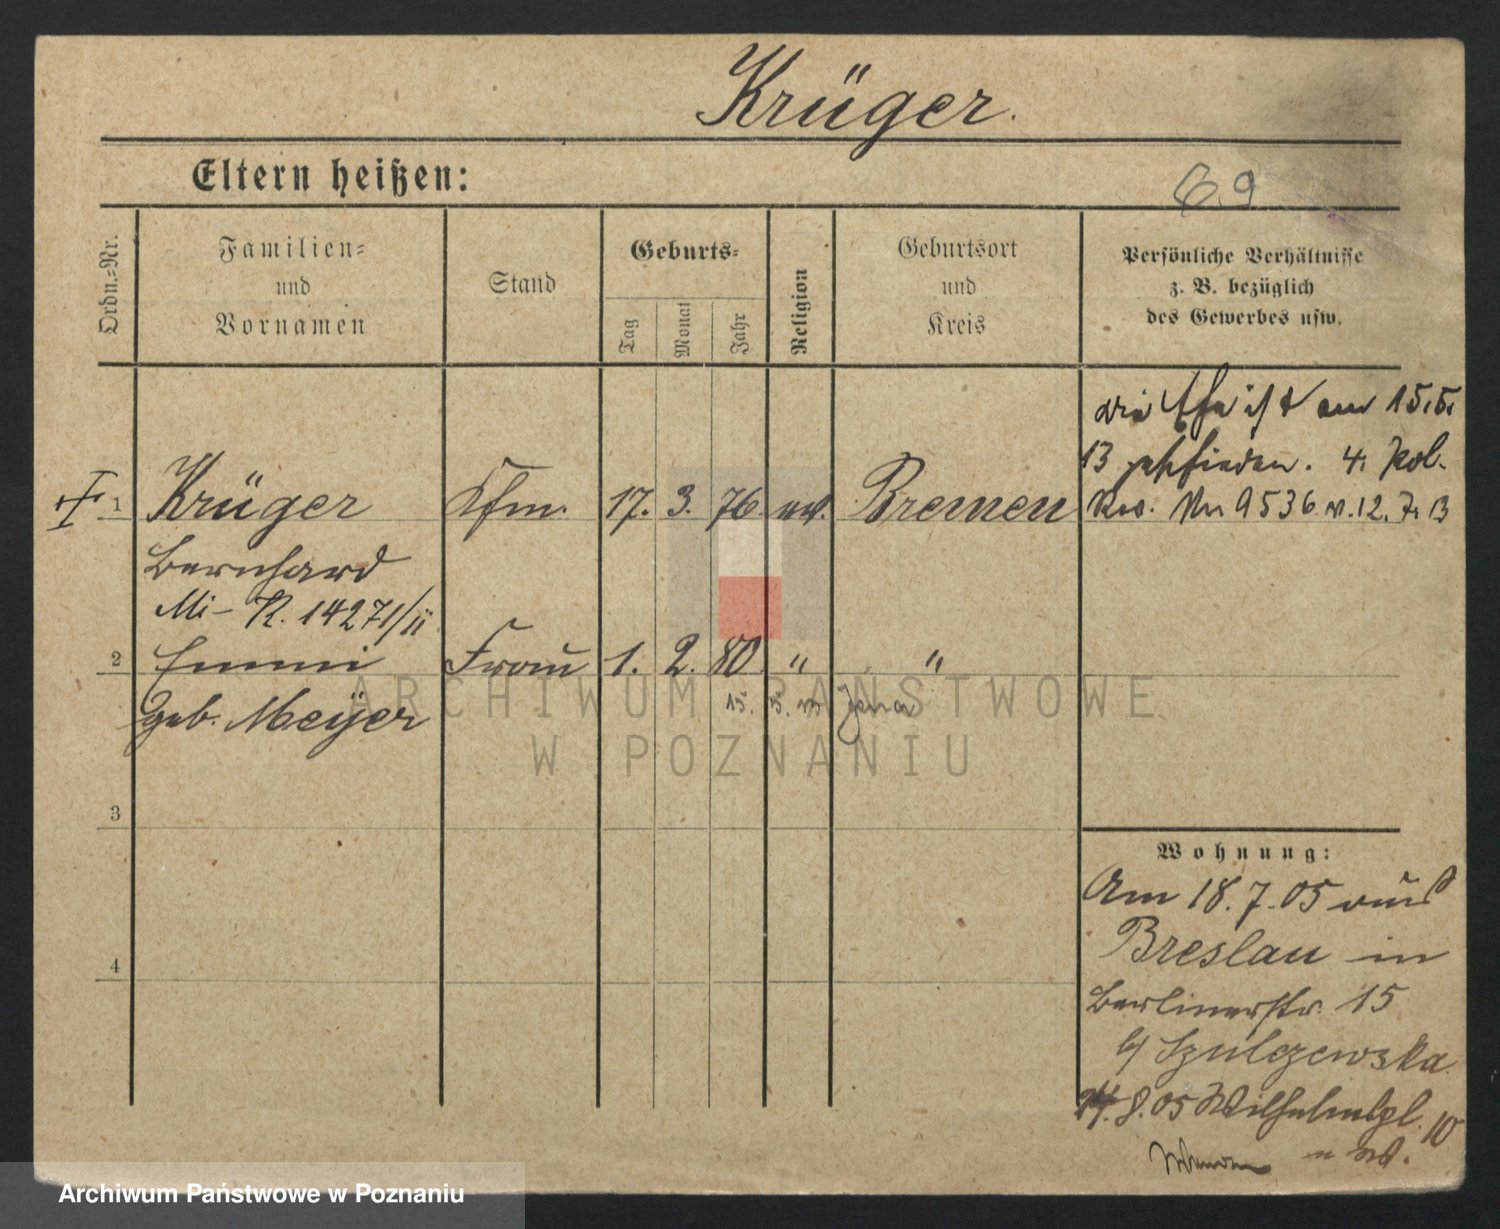 Krüger.
Eltern heißen:
69
Ordn.=Nr.
Familien=
und
Vornamen
Stand
Geburts=
Tag
Monat
Jahr
Religion
Geburtsort
und
Kreis
Persönliche Verhältnisse
z. B. bezüglich
des Gewerbes usw.
die Ehe ist am 15.5.
13 geschieden. 4. Pol.
Nr 9536 v. 12. 7. 13
1 Krüger Kfm. 17. 3. 76. ev. Bremen
Bernhard
Mi- R. 14271/II
2 Emmi Frau 1. 2. 80 " "
geb. Meÿer
15. 5. Jena
3
4
Wohnung:
Am 18.7.05 aus
Breslau in
Berlinerstr. 15
b/ Szulczewska
24.8.05 Wilhelmspl. 10
ARCHIWUM PAŃSTWOWE
W POZNANIU
Archiwum Państwowe w Poznaniu